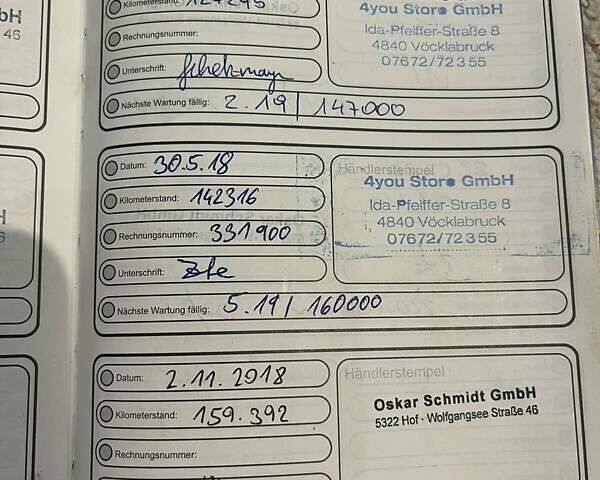 bH
46
Kilometerstand: 127295
4you Store GmbH
Ida-Pfeiffer-Straße 8
4840 Vöcklabruck
07672/72355
Rechnungsnummer:
Unterschrift:
Nächste Wartung fällig: 2.19 / 147000
Datum: 30.5.18
Händlerstempel
4you Store GmbH
Ida-Pfeiffer-Straße 8
4840 Vöcklabruck
07672/72355
Kilometerstand: 142316
Rechnungsnummer: 331900
Unterschrift:
Nächste Wartung fällig: 5.19 / 160000
Datum: 2.11.2018
Händlerstempel
Oskar Schmidt GmbH
5322 Hof · Wolfgangsee Straße 46
Kilometerstand: 159.392
Rechnungsnummer: